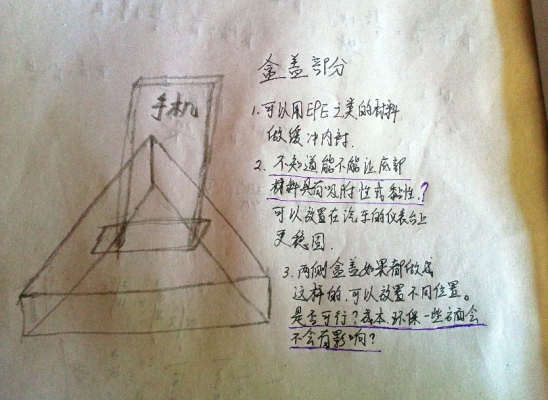 盒盖部分
手机
1. 可以用EPE之类的材料
做缓冲内衬.
2. 不知道能不能让底部
材料具有吸附性或黏性.?
可以放置在汽车的仪表台上
更稳固.
3. 两侧盒盖如果都做成
这样的,可以放置不同位置。
是否可行?成本.环保一些方面会
不会有影响?